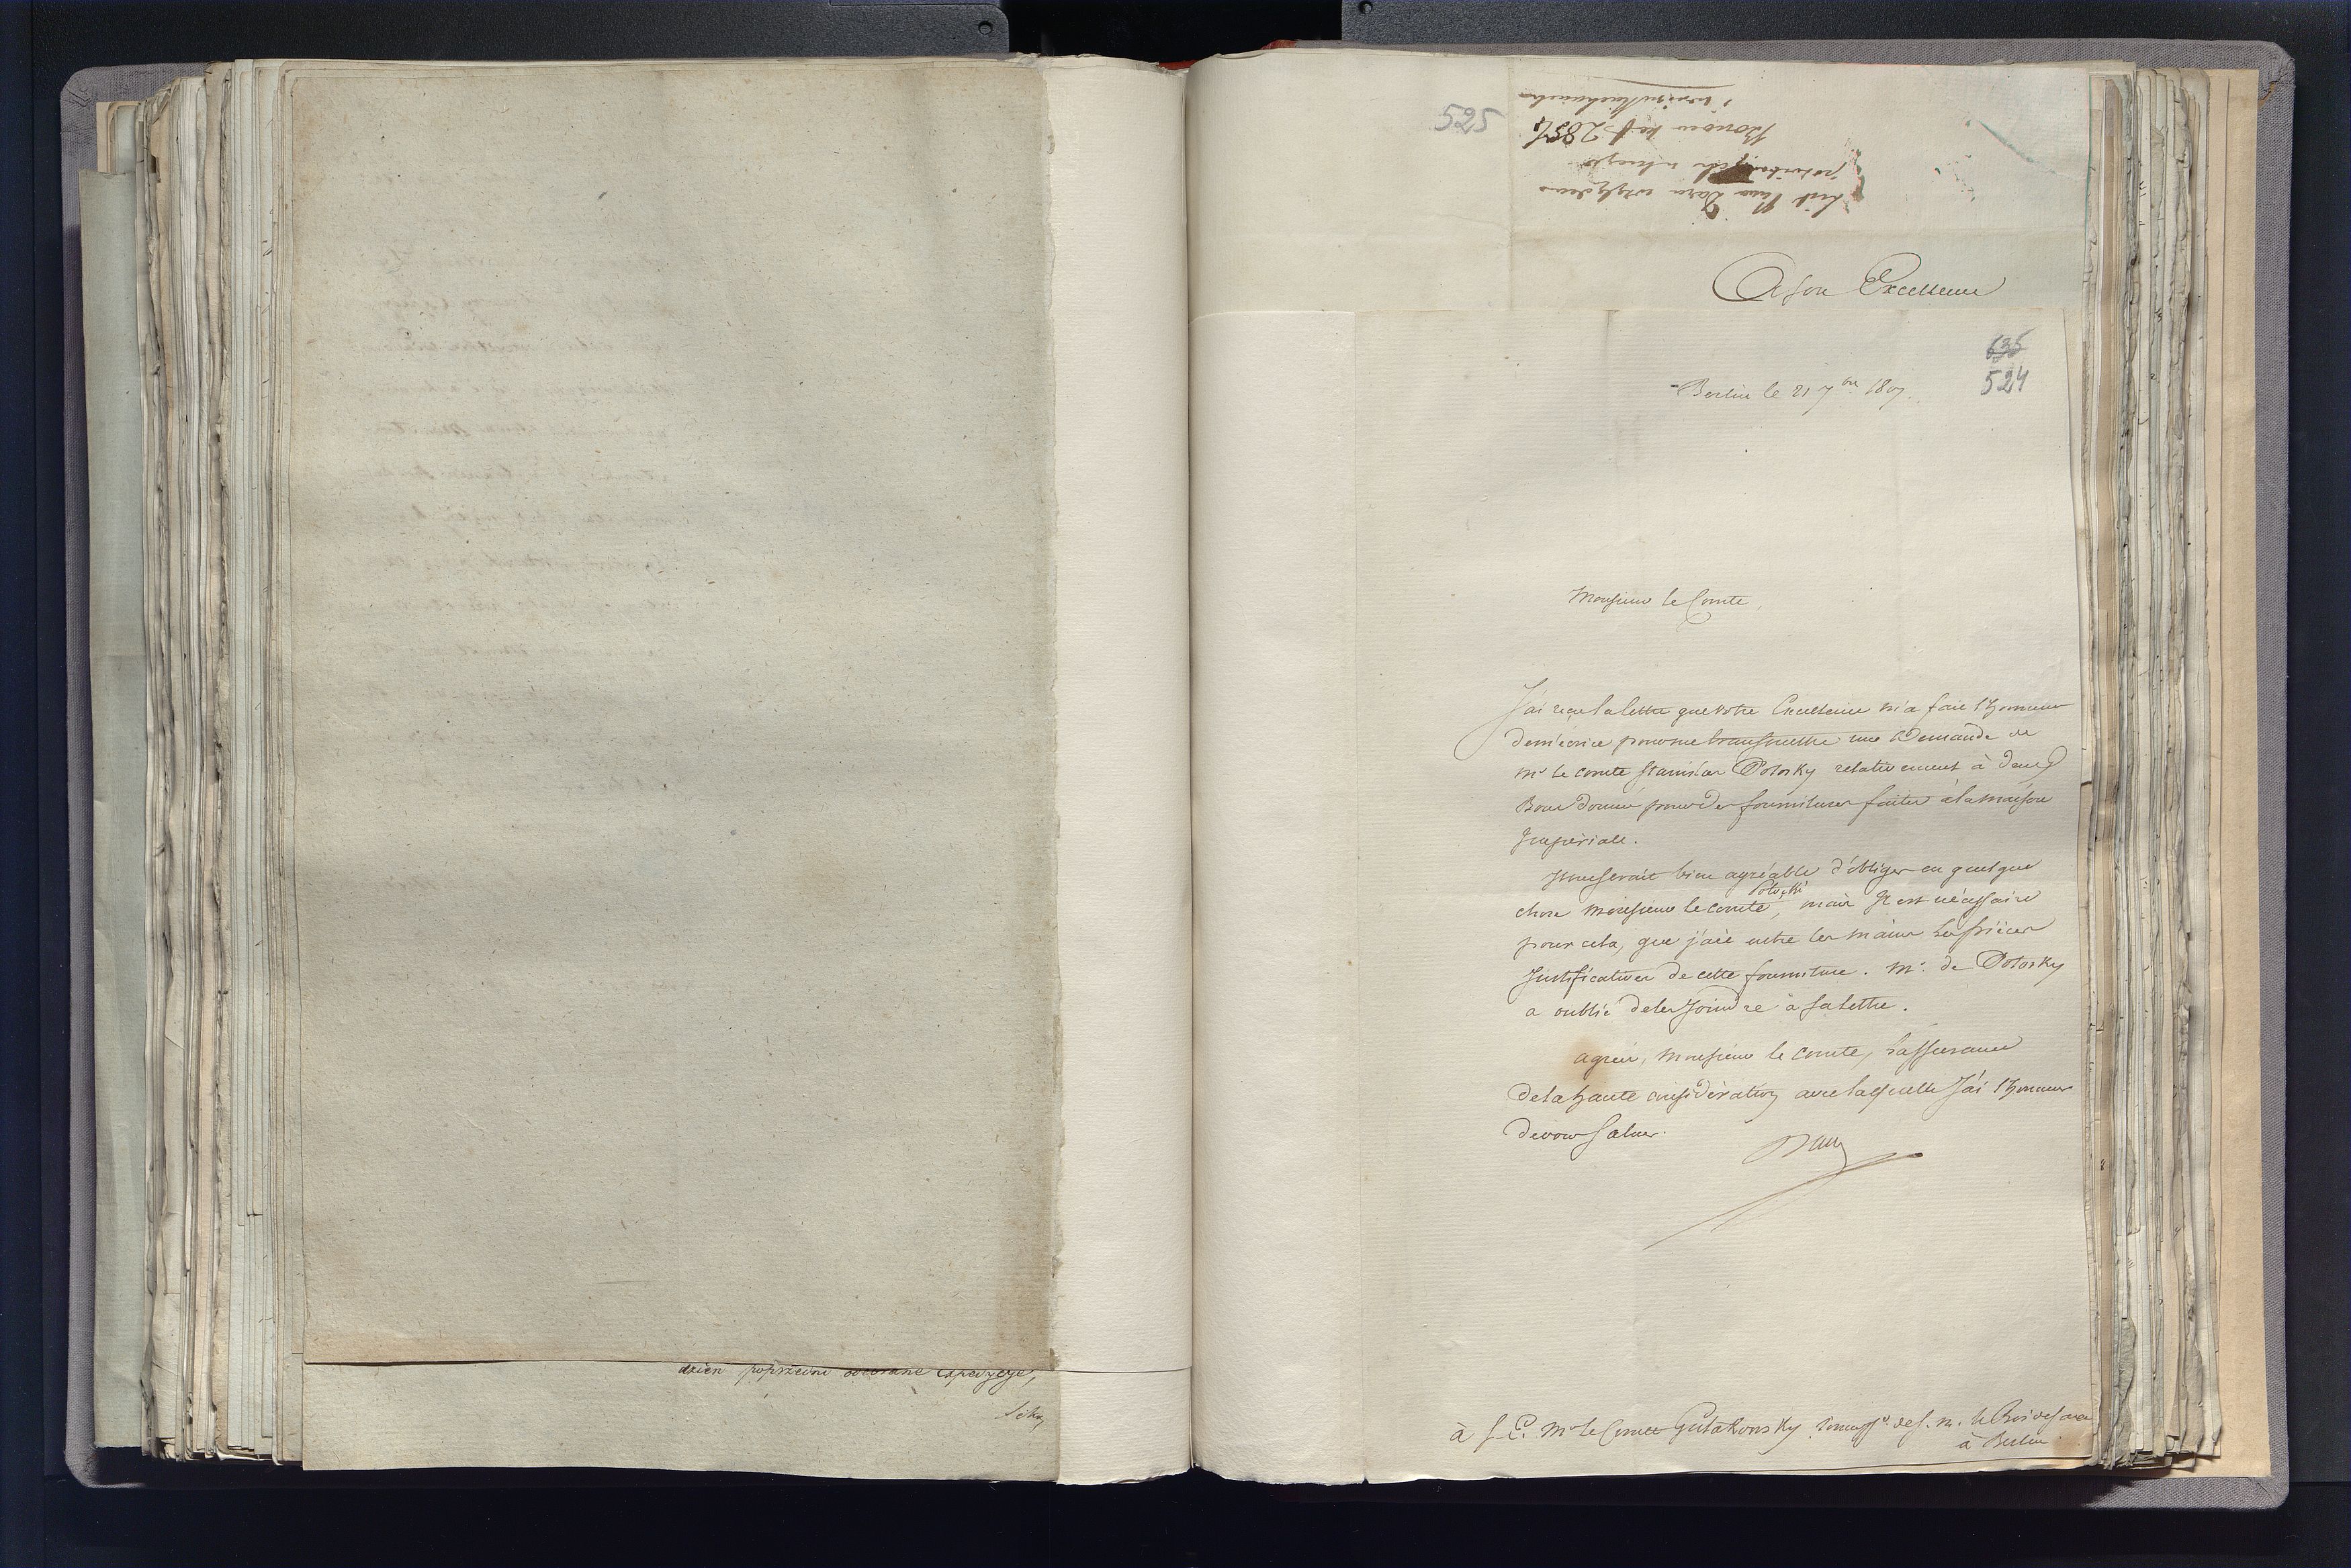 dzien poprzedni
525
List Pana Daru względem
Bonow na # 285
A Son Excellence
635
524
Berlin le 21 7bre 1807.
Monsieur le Comte,
J'ai reçu la lettre que votre Excellence m'a fait l'honneur
de m'écrire pour me transmettre une Demande de
Mr le comte Stanislas Potosky relativement à deux
Bons donnés pour des fournitures faites à la maison
Impériale.
Il me serait bien agréable d'obliger en quelque
chose Monsieur le comte Potocki, mais Il est nécessaire
pour cela, que j'aie entre les mains les pièces
Justificatives de cette fourniture. Mr. de Potosky
a oublié de les Joindre à sa lettre.
agréez, Monsieur le comte, l'assurance
de la haute considération avec laquelle J'ai l'honneur
de vous saluer.
Daru
à S. E. Mr le Comte Gutakowsky Commissre de S. M. le Roi de Saxe
à Berlin